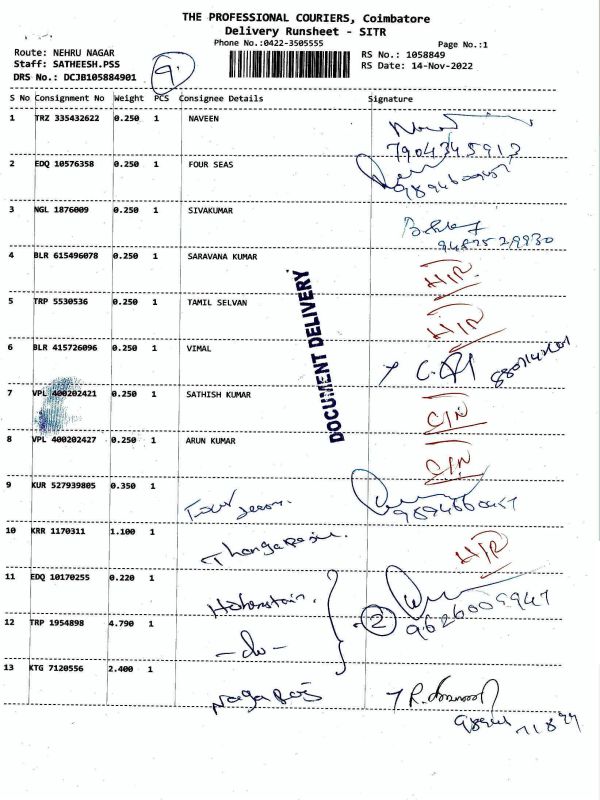 THE PROFESSIONAL COURIERS, Coimbatore
Delivery Runsheet - SITR
Phone No.:0422-3505555 Page No.:1
Route: NEHRU NAGAR RS No.: 1058849
Staff: SATHEESH.PSS RS Date: 14-Nov-2022
DRS No.: DCJB105884901
9
S No Consignment No Weight PCS Consignee Details Signature
1 TRZ 335432622 0.250 1 NAVEEN
7904345913
2 EDQ 10576358 0.250 1 FOUR SEAS
9894660457
3 NGL 1876009 0.250 1 SIVAKUMAR
9487529930
4 BLR 615496078 0.250 1 SARAVANA KUMAR H/R
5 TRP 5530536 0.250 1 TAMIL SELVAN H/R
6 BLR 415726096 0.250 1 VIMAL
7 VPL 400202421 0.250 1 SATHISH KUMAR C/N
8 VPL 400202427 0.250 1 ARUN KUMAR C/N
9 KUR 527939805 0.350 1 9894660457
10 KRR 1170311 1.100 1 H/R
11 EDQ 10170255 0.220 1
12 TRP 1954898 4.790 1 -do- 2 9626009947
13 KTG 7120556 2.400 1 Nagaraj
DOCUMENT DELIVERY